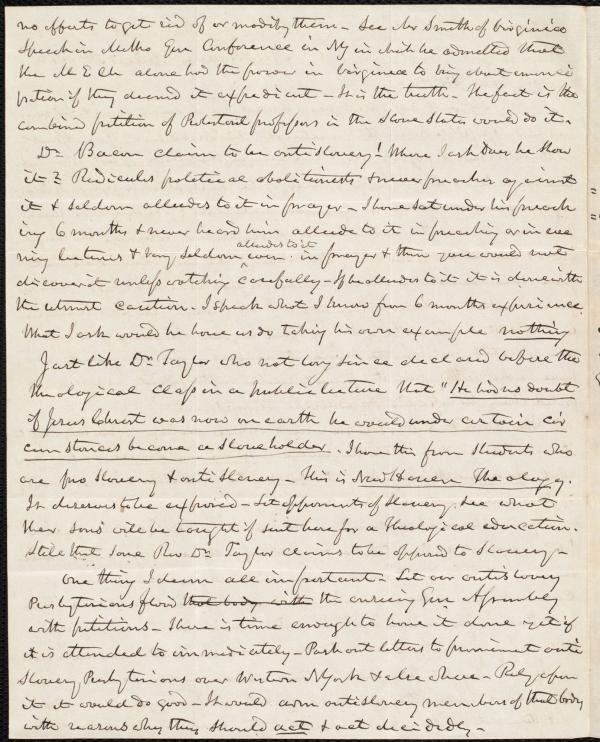 no efforts to get rid of or modify them - See Mr Smith of Virginia
Speech in Metho Gen Conference in NY in which he admitted that
the M E Ch alone had the power in Virginia to bring about emanci
pation if they deemed it expedient - It is the truth - The fact is the
combined petition of Protestant professors in the Slave States would do it.
Dr Bacon claims to be antislavery! Where I ask Does he show
it? Ridicules political abolitionists & never preaches against
it & seldom alludes to it in prayer - I have sat under his preach
ing 6 months & never heard him allude to it in preaching or in eve
ning lectures & very seldom even alludes to it in prayer & then you would not
discover it unless watching carefully - If he alludes to it it is done with
the utmost caution - I speak what I know from 6 months experience.
What I ask would he have us do taking his own example nothing
Just like Dr Taylor who not long since declared before the
theological class in a public lecture that "He had no doubt
if Jesus Christ was now on earth he would under certain cir
cumstances become a slaveholder. I have this from Students who
are pro Slavery & anti Slavery - This is New Haven Theology.
It deserves to be exposed - Let opponents of Slavery see what
their sons will be taught if sent here for a theological education.
Still that same Rev Dr Taylor claims to be opposed to Slavery -
One thing I deem all important - Let our antislavery
Presbyterians flood that body with the ensuing Gen Assembly
with petitions - There is time enough to have it done yet if
it is attended to immediately - Push out letters to prominent anti
slavery Presbyterians over Western N York & elsewhere - Rely upon
it it would do good - It would arm antislavery members of that body
with reasons why they should act & act decidedly -